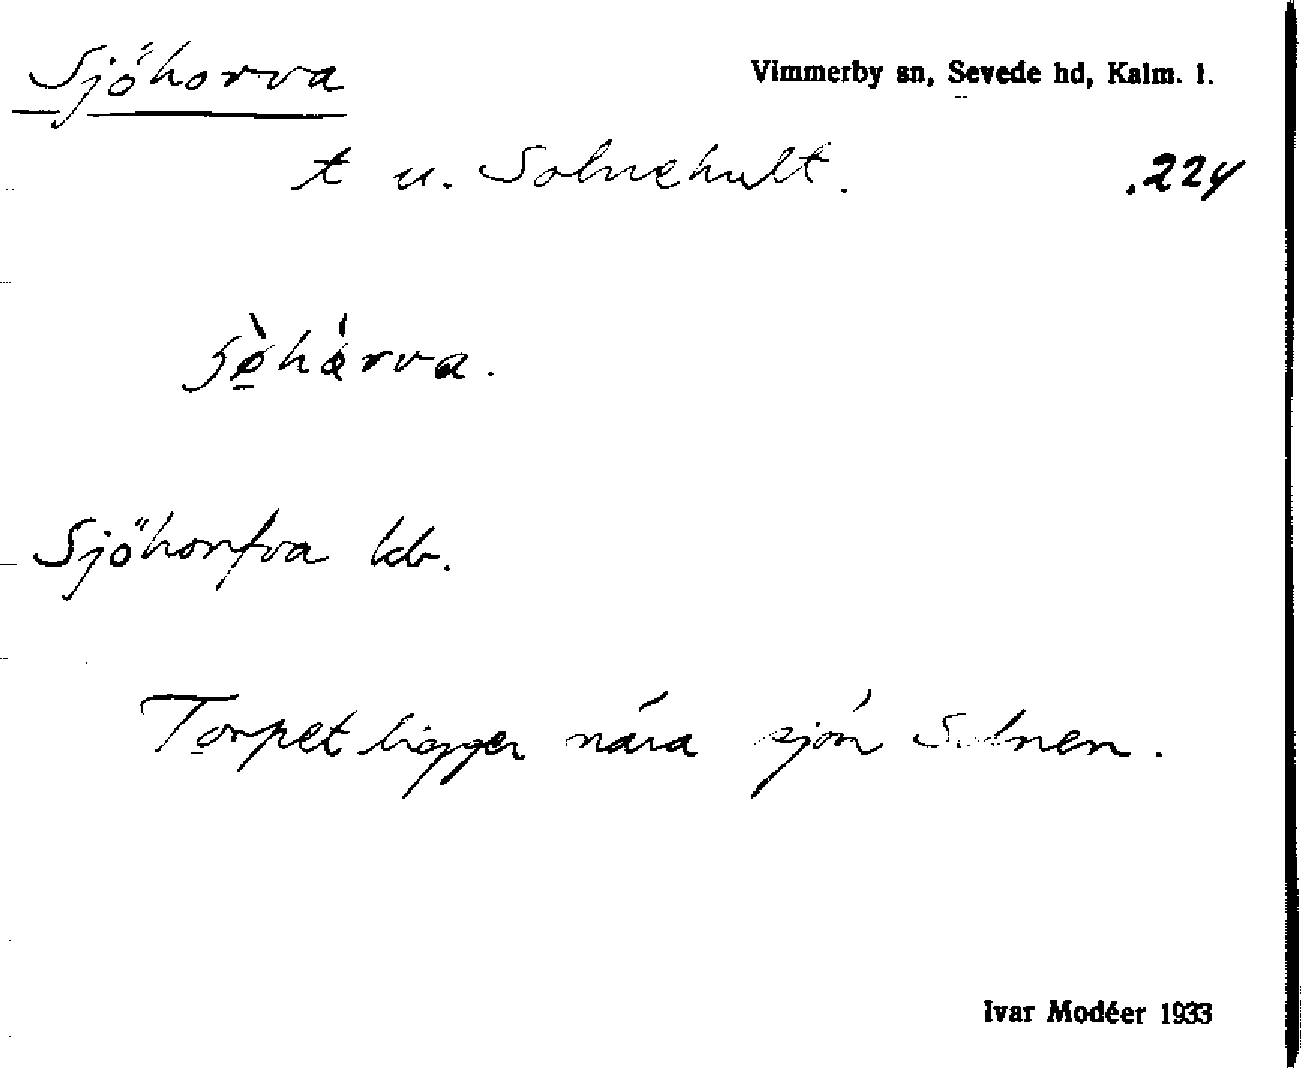 Sjöhorva
Vimmerby sn, Sevede hd, Kalm. l.
t u. Solnehult.
.224
Sjöhorfva kb.
Torpet ligger nära sjön Solnen.
Ivar Modéer 1933